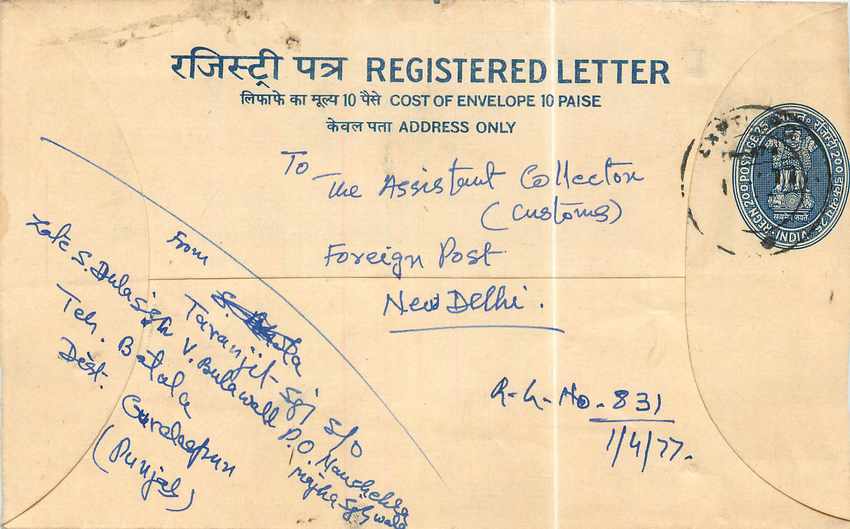 रजिस्ट्री पत्र REGISTERED LETTER
लिफाफे का मूल्य 10 पैसे COST OF ENVELOPE 10 PAISE
केवल पता ADDRESS ONLY
To
The Assistant Collector
(Customs)
Foreign Post
New Delhi.
REGN. 200 POSTAGE 25
INDIA
सत्यमेव जयते
From
Taranjit Sgh S/O
Late S. Dula Sgh V. Bulewall P.O. Naushehra
Majha Sgh wala
Teh. Batala
Dist. Gurdaspur
(Punjab)
R-L-No-831
1/4/77.